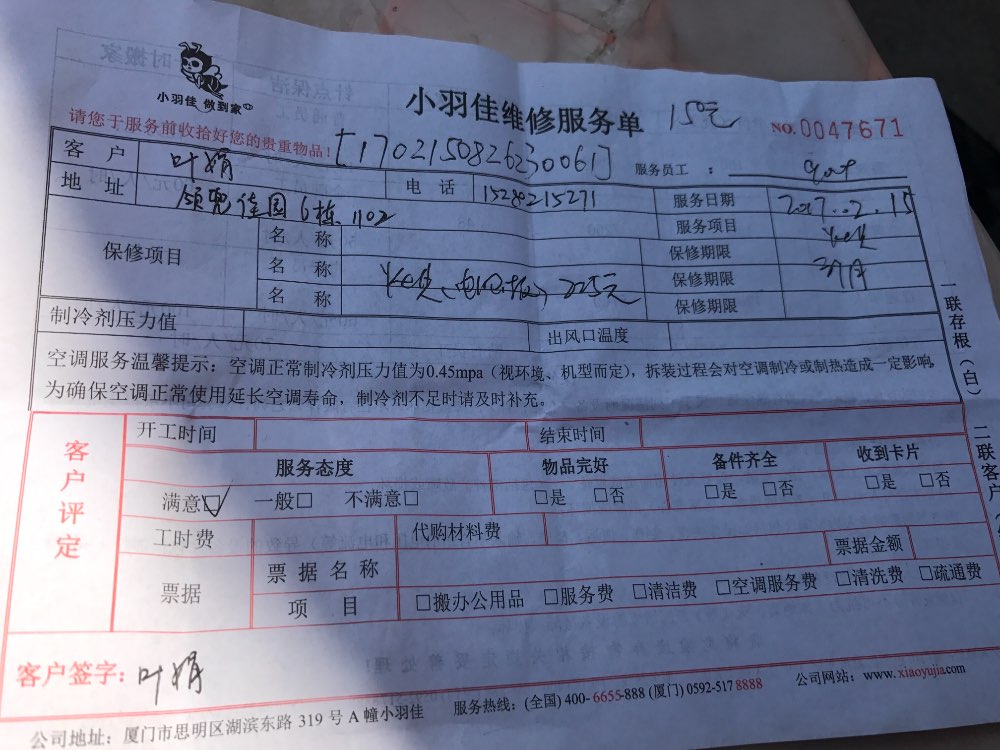 小羽佳 做到家
小羽佳维修服务单 150元
NO.0047671
请您于服务前收拾好您的贵重物品!
[170215082630061]
服务员工 :
客 户 叶娟
地 址 6栋1102
电 话 15280215271
服务日期 2017.02.15
服务项目
保修项目
名 称
保修期限
名 称 225元
保修期限 3个月
名 称
保修期限
制冷剂压力值
出风口温度
空调服务温馨提示：空调正常制冷剂压力值为0.45mpa（视环境、机型而定），拆装过程会对空调制冷或制热造成一定影响，
为确保空调正常使用延长空调寿命，制冷剂不足时请及时补充。
一联存根（白）
二联客户
客户评定
开工时间
结束时间
服务态度
物品完好
备件齐全
收到卡片
满意☑ 一般□ 不满意□
□是 □否
□是 □否
□是 □否
工时费
代购材料费
票据
票 据 名 称
票据金额
项 目
□搬办公用品 □服务费 □清洁费 □空调服务费 □清洗费 □疏通费
客户签字：叶娟
公司地址：厦门市思明区湖滨东路 319 号 A 幢小羽佳
服务热线：(全国) 400-6655-888 (厦门) 0592-517 8888
公司网站：www.xiaoyujia.com